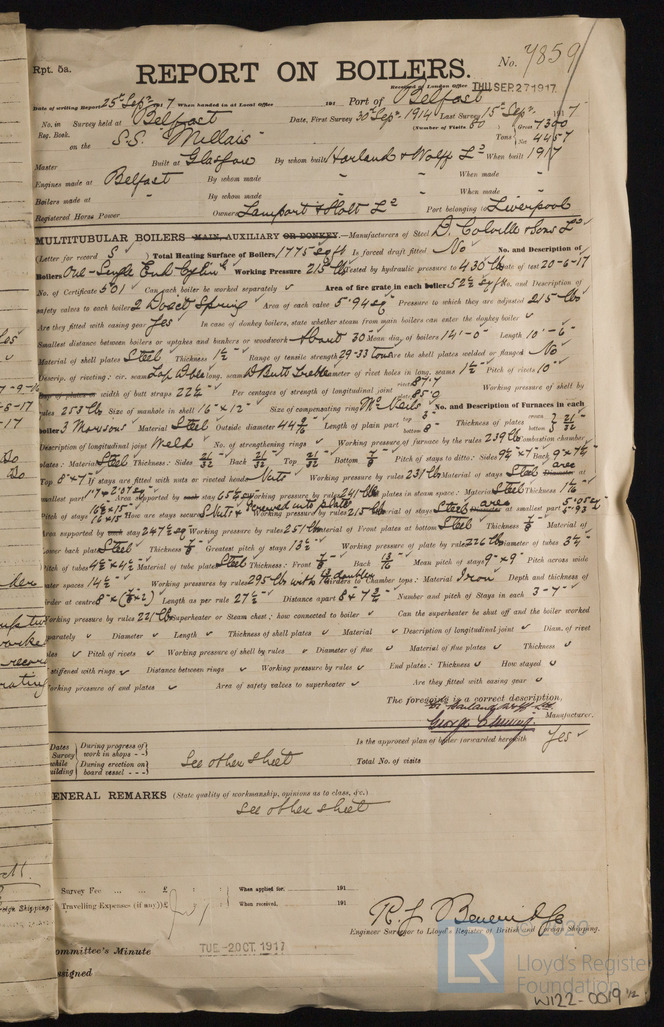 Rpt. 5a.
REPORT ON BOILERS.
No. 7859
Received at London Office THU. SEP. 27 1917
Date of writing Report 25th Sept 1917 When handed in at Local Office 191 Port of Belfast
No. in Survey held at Belfast Date, First Survey 30 Sep. 1914 Last Survey 15 Sep. 1917
Reg. Book. (Number of Visits 50
on the S.S. "Millais" Tons Gross 7300 Net 4457
Master Built at Glasgow By whom built Harland & Wolff Ld When built 1917
Engines made at Belfast By whom made " When made "
Boilers made at " By whom made " When made "
Registered Horse Power Owners Lamport & Holt Ld Port belonging to Liverpool
MULTITUBULAR BOILERS MAIN, AUXILIARY OR DONKEY.—Manufacturers of Steel D. Colville & Sons Ld
(Letter for record S) Total Heating Surface of Boilers 1775 sq ft Is forced draft fitted No No. and Description of
Boilers One-Single End Working Pressure 215 lbs Tested by hydraulic pressure to 430 lbs Date of test 20-6-17
No. of Certificate 501 Can each boiler be worked separately ✓ Area of fire grate in each boiler 52½ sq ft No. and Description of
safety valves to each boiler 2 Direct Spring Area of each valve 5.94 sq" Pressure to which they are adjusted 215 lbs
Are they fitted with easing gear Yes In case of donkey boilers, state whether steam from main boilers can enter the donkey boiler ✓
Smallest distance between boilers or uptakes and bunkers or woodwork About 30" Mean dia. of boilers 14'-0" Length 10'-6"
Material of shell plates Steel Thickness 1½" Range of tensile strength 29-33 tons Are the shell plates welded or flanged No
Descrip. of riveting: cir. seams Lap Dble long. seams D Butt Treble Diameter of rivet holes in long. seams 1½" Pitch of rivets 10"
Lap of plates or width of butt straps 22½" Per centages of strength of longitudinal joint rivets 87.7 plate 85.9 Working pressure of shell by
rules 253 lbs Size of manhole in shell 16" × 12" Size of compensating ring McNeils No. and Description of Furnaces in each
boiler 3 Morisons Material Steel Outside diameter Length of plain part top 3" bottom 8" Thickness of plates crown bottom 21/32"
Description of longitudinal joint Weld No. of strengthening rings ✓ Working pressure of furnace by the rules 239 lbs Combustion chamber
plates: Material Steel Thickness: Sides 21/32 Back 21/32 Top 21/32 Bottom 7/8 Pitch of stays to ditto: Sides Back
Top 8" × 7" If stays are fitted with nuts or riveted heads Nuts Working pressure by rules 231 lbs Material of stays Steel area Diameter at
smallest part Area supported by each stay Working pressure by rules 241 lbs End plates in steam space: Material Steel Thickness
Pitch of stays How are stays secured S Nuts & screwed into plate Working pressure by rules 215 lbs Material of stays Steel area Diameter at smallest part
Area supported by each stay 247½ sq Working pressure by rules 251 lbs Material of Front plates at bottom Steel Thickness 7/8 Material of
Lower back plate Steel Thickness 7/8 Greatest pitch of stays 13½ Working pressure of plate by rules 226 lbs Diameter of tubes 3¼"
Pitch of tubes 4½" × 4½" Material of tube plates Steel Thickness: Front 7/8 Back 13/16 Mean pitch of stays 9" × 9" Pitch across wide
water spaces 14½" Working pressures by rules 295 lbs with doublers Girders to Chamber tops: Material Iron Depth and thickness of
girder at centre Length as per rule 27½" Distance apart Number and pitch of Stays in each 3-7"
Working pressure by rules 221 lbs Superheater or Steam chest; how connected to boiler ✓ Can the superheater be shut off and the boiler worked
separately ✓ Diameter ✓ Length ✓ Thickness of shell plates ✓ Material ✓ Description of longitudinal joint ✓ Diam. of rivet
holes ✓ Pitch of rivets ✓ Working pressure of shell by rules ✓ Diameter of flue ✓ Material of flue plates ✓ Thickness ✓
If stiffened with rings ✓ Distance between rings ✓ Working pressure by rules ✓ End plates: Thickness ✓ How stayed ✓
Working pressure of end plates ✓ Area of safety valves to superheater ✓ Are they fitted with easing gear ✓
The foregoing is a correct description,
For Harland & Wolff Ld
George Cuming. Manufacturer.
Dates of Survey while building { During progress of work in shops - - } { During erection on board vessel - - - } See other sheet
Is the approved plan of boiler forwarded herewith Yes
Total No. of visits
GENERAL REMARKS (State quality of workmanship, opinions as to class, &c.)
See other sheet
Survey Fee ... ... £ When applied for. 191
Travelling Expenses (if any)) £ When received. 191
Engineer Surveyor to Lloyd's Register of British and Foreign Shipping.
Committee's Minute TUE-2 OCT. 1917
Assigned
© 2020
LR
Lloyd's Register
Foundation
W122-0019 1/2